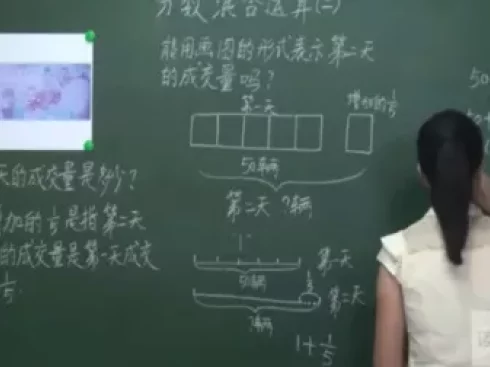 分数混合运算(二)
能用画图的形式表示第二天
的成交量吗?
第一天
增加的1/5
50辆
第二天 ?辆
天的成交量是多少?
加的1/5是指第二天
的成交量是第一天成交
1/5
"1"
50辆
第一天
1/5
第二天
?辆
1+1/5
50